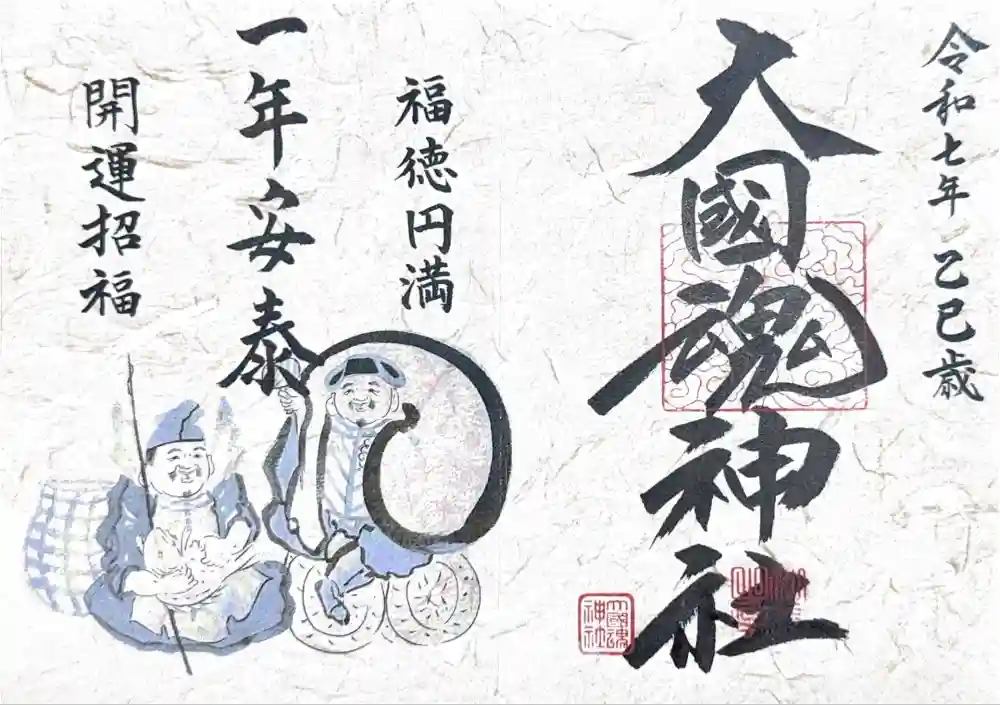 令和七年 乙巳歳
大國魂神社
大國魂神社
福徳円満
一年安泰
開運招福